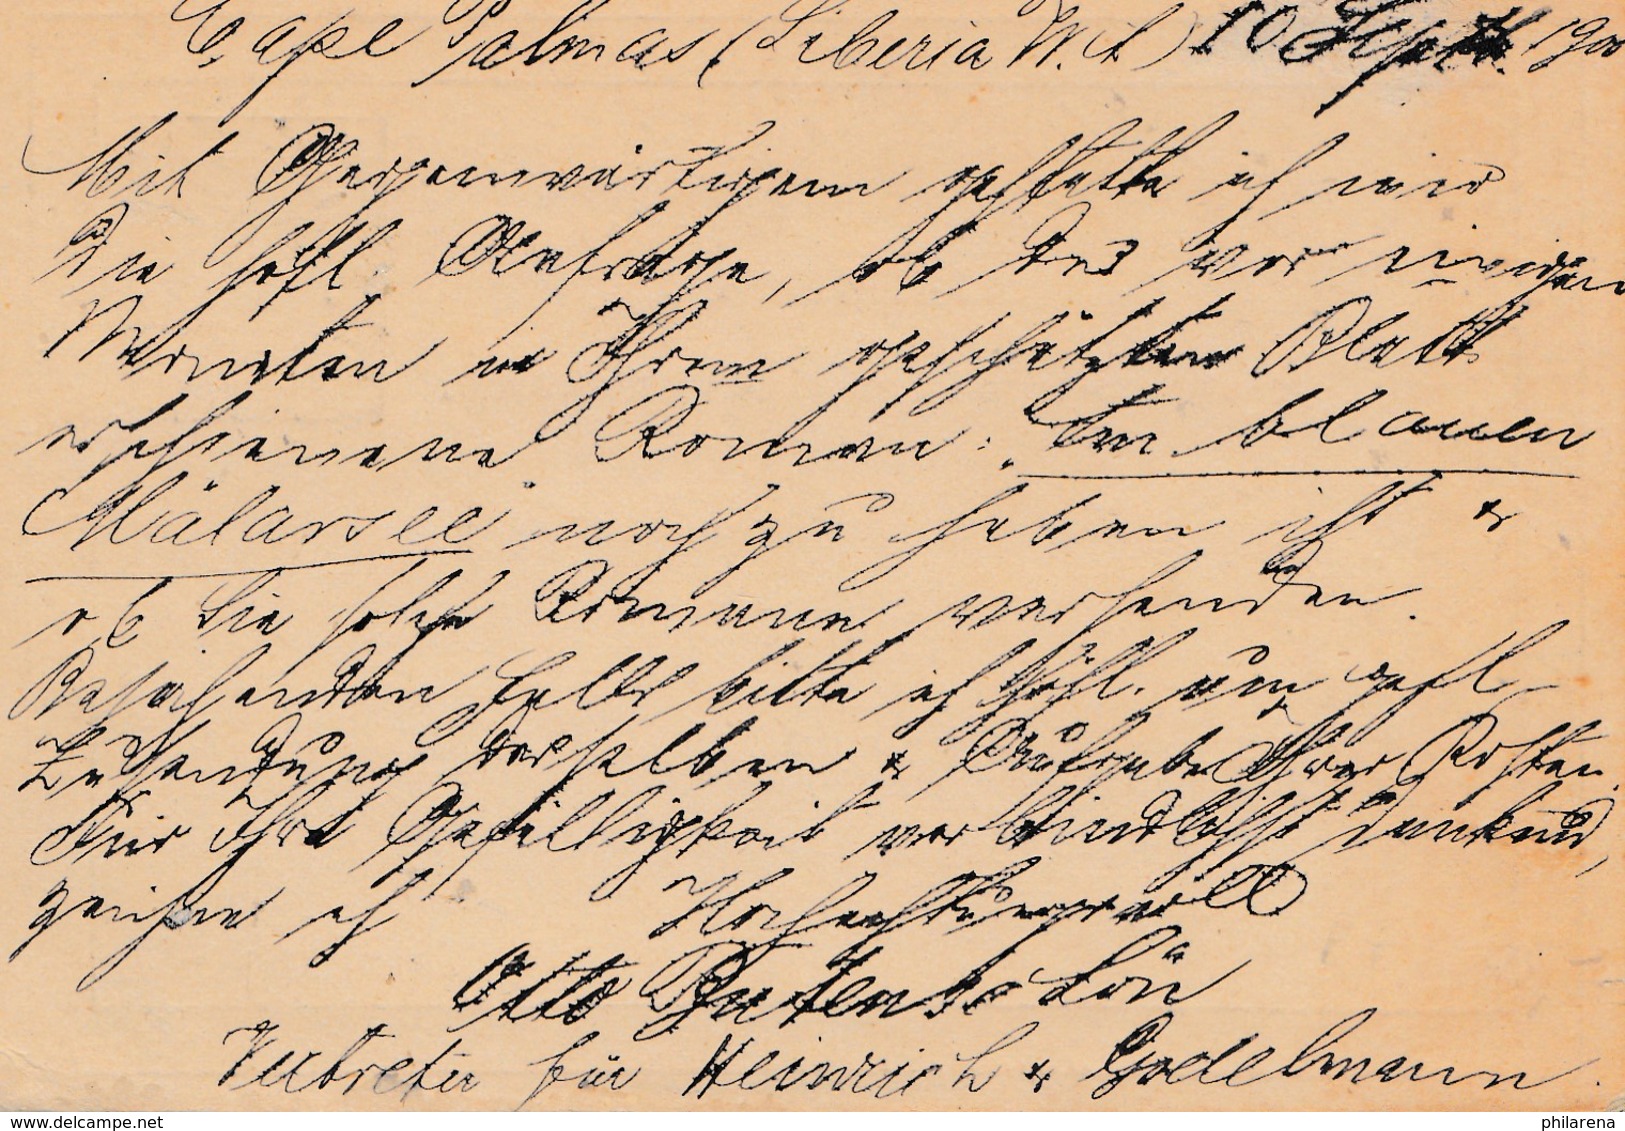 Cape Palmas (Liberia W. A.) 10 Sept. 1900
Mit Gegenwärtigem gestatte ich mir
die höfl. Anfrage, ob der vor einigen
Monaten in Ihrem geschätzten Blatt
erschienene Roman: „Am blauen
Mälarsee noch zu haben ist &
ob Sie solche Romane versenden.
Bejahenden Falls bitte ich höfl. um gefl.
Zusendung desselben & Aufgabe Ihrer Kosten.
Für Ihre Gefälligkeit verbindlichst dankend,
zeichne ich Hochachtungsvoll
Otto
Vertreter für Heinrich & Godelmann.
philarena.com